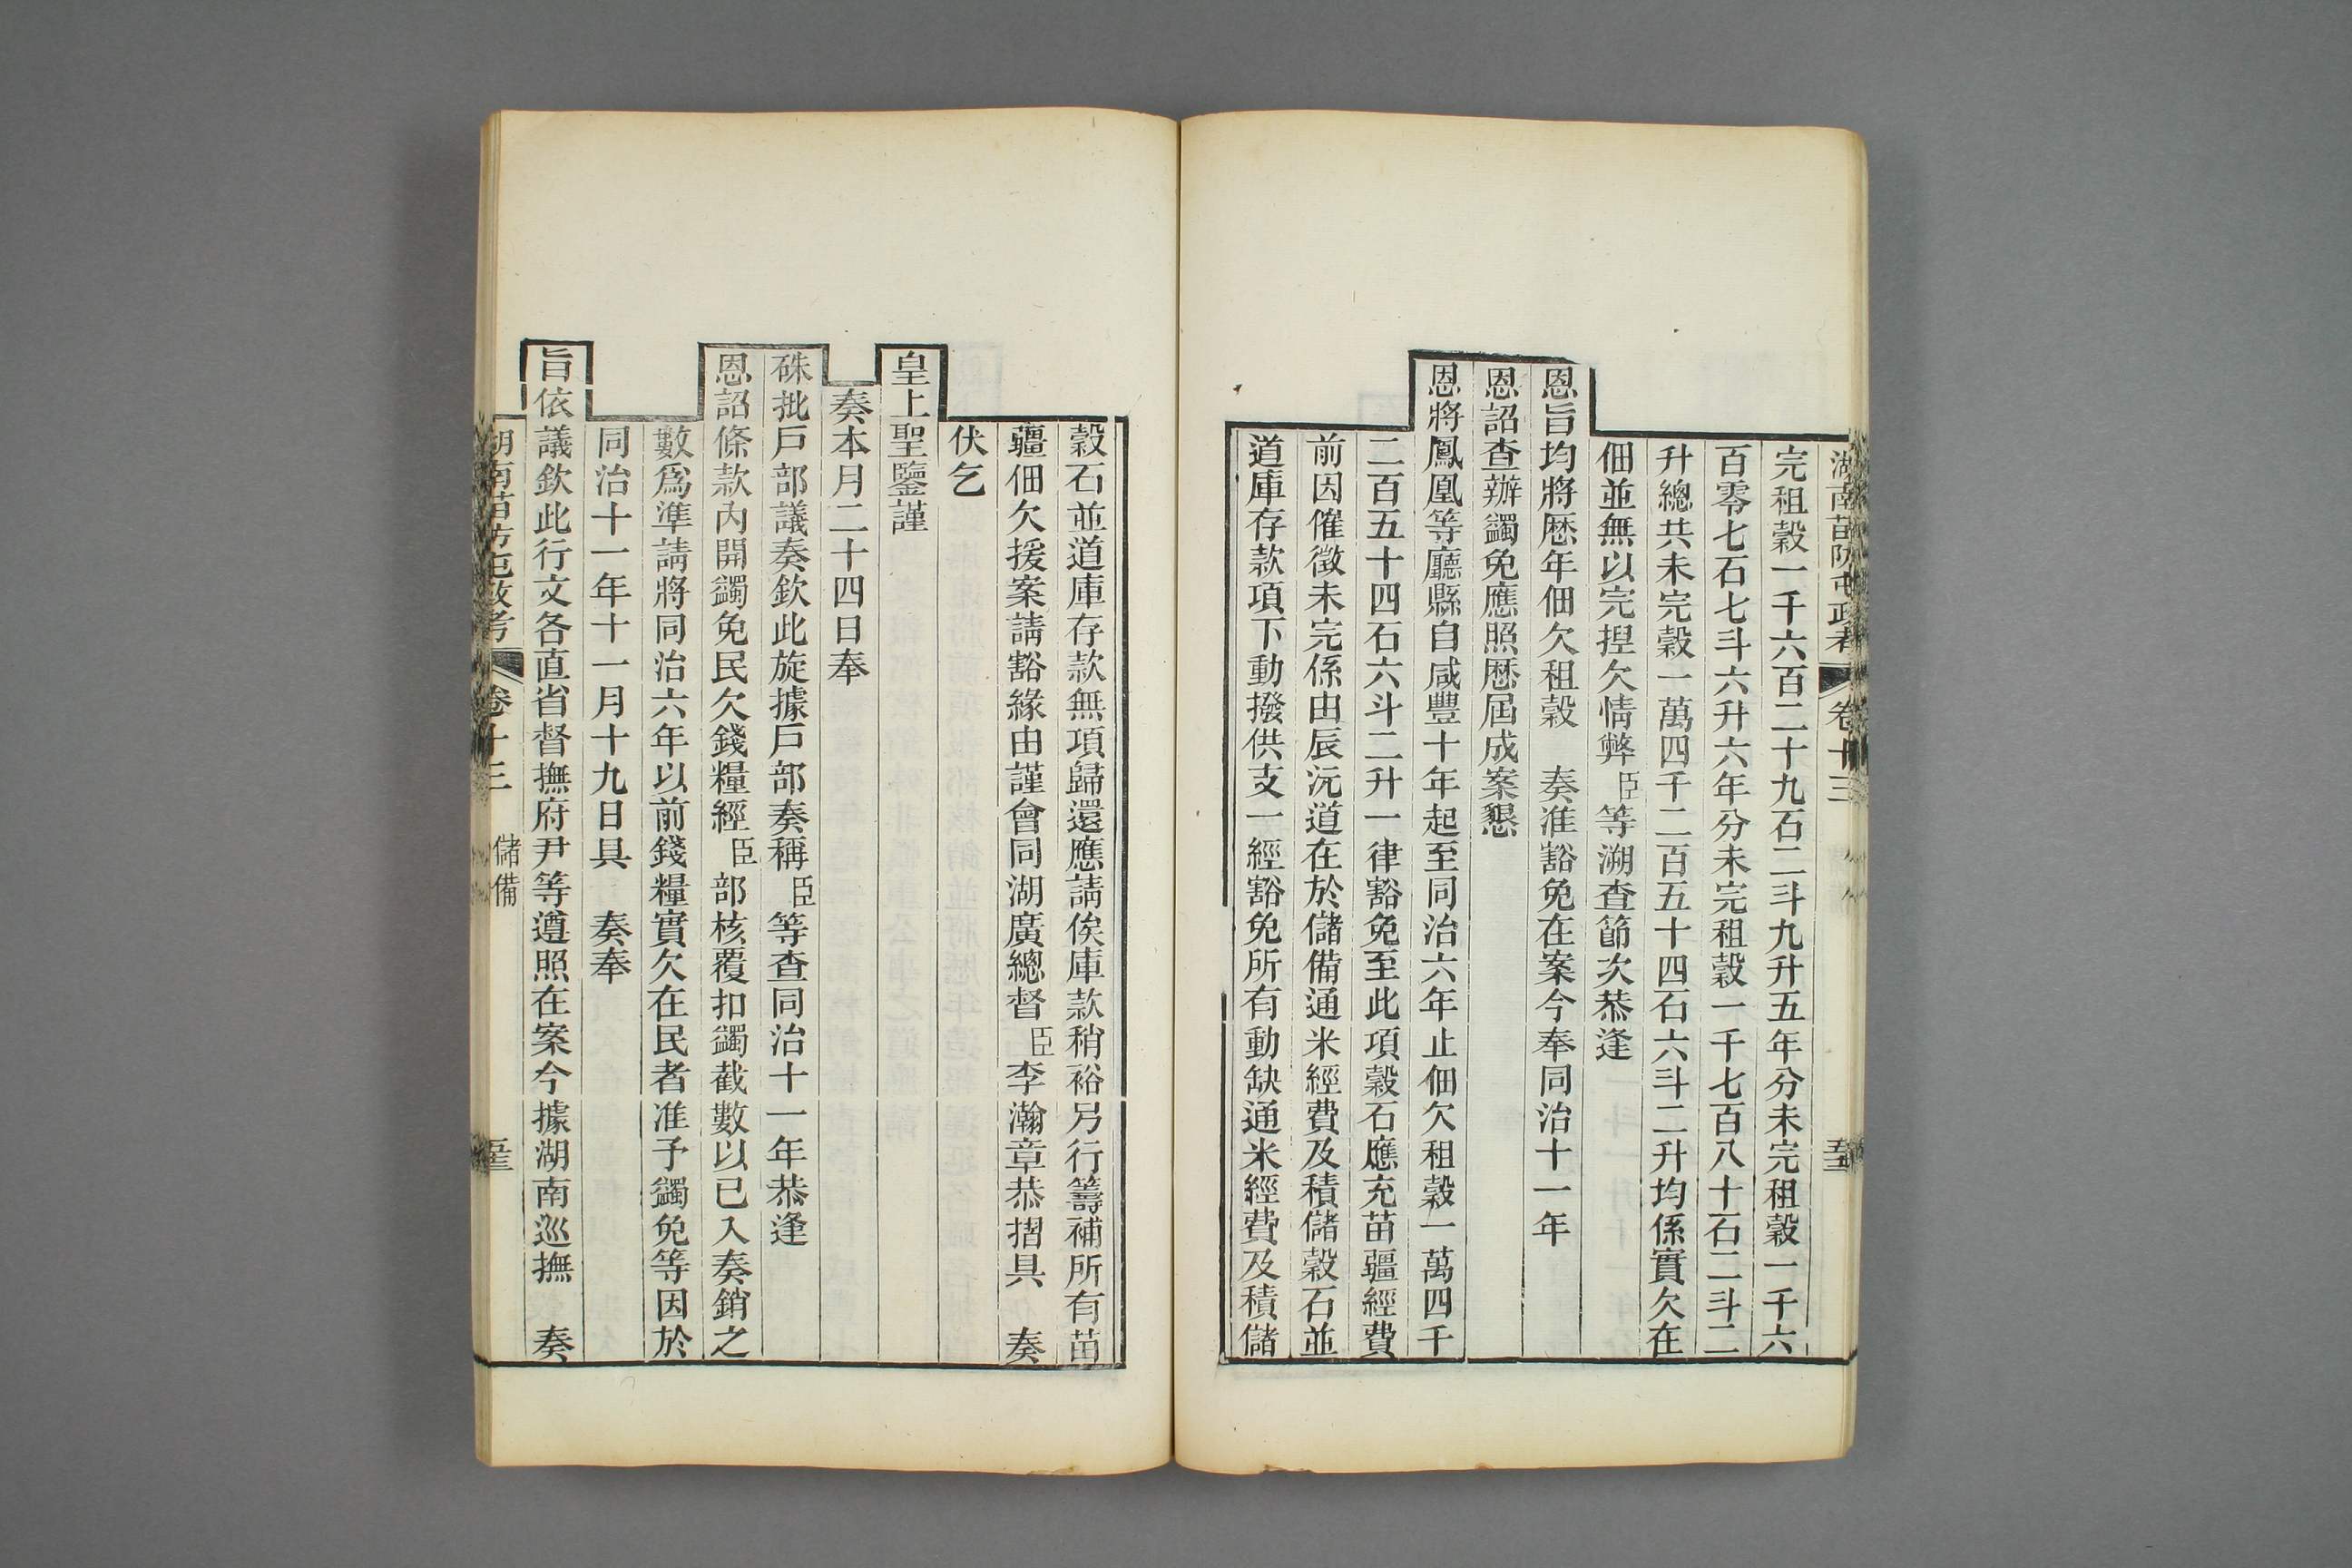 湖南苗防屯政考 卷十三
完租穀一千六百二十九石二斗九升五年分未完租穀一千六
百零七石七斗六升六年分未完租穀一千七百八十石二斗二
升總共未完穀一萬四千二百五十四石六斗二升均係實欠在
佃並無以完捏欠情弊臣等溯查節次恭逢
恩旨均將歷年佃欠租穀 奏准豁免在案今奉同治十一年
恩詔查辦蠲免應照歷屆成案懇
恩將鳳凰等廳縣自咸豐十年起至同治六年止佃欠租穀一萬四千
二百五十四石六斗二升一律豁免至此項穀石應充苗疆經費
前因催徵未完係由辰沅道在於儲備通米經費及積儲穀石並
道庫存款項下動撥供支一經豁免所有動缺通米經費及積儲
穀石並道庫存款無項歸還應請俟庫款稍裕另行籌補所有苗
疆佃欠援案請豁緣由謹會同湖廣總督臣李瀚章恭摺具 奏
伏乞
皇上聖鑒謹
奏本月二十四日奉
硃批戶部議奏欽此旋據戶部奏稱臣等查同治十一年恭逢
恩詔條款內開蠲免民欠錢糧經臣部核覆扣蠲截數以已入奏銷之
數爲準請將同治六年以前錢糧實欠在民者准予蠲免等因於
同治十一年十一月十九日具 奏奉
旨依議欽此行文各直省督撫府尹等遵照在案今據湖南巡撫 奏
湖南苗防屯政考 卷十三 儲備